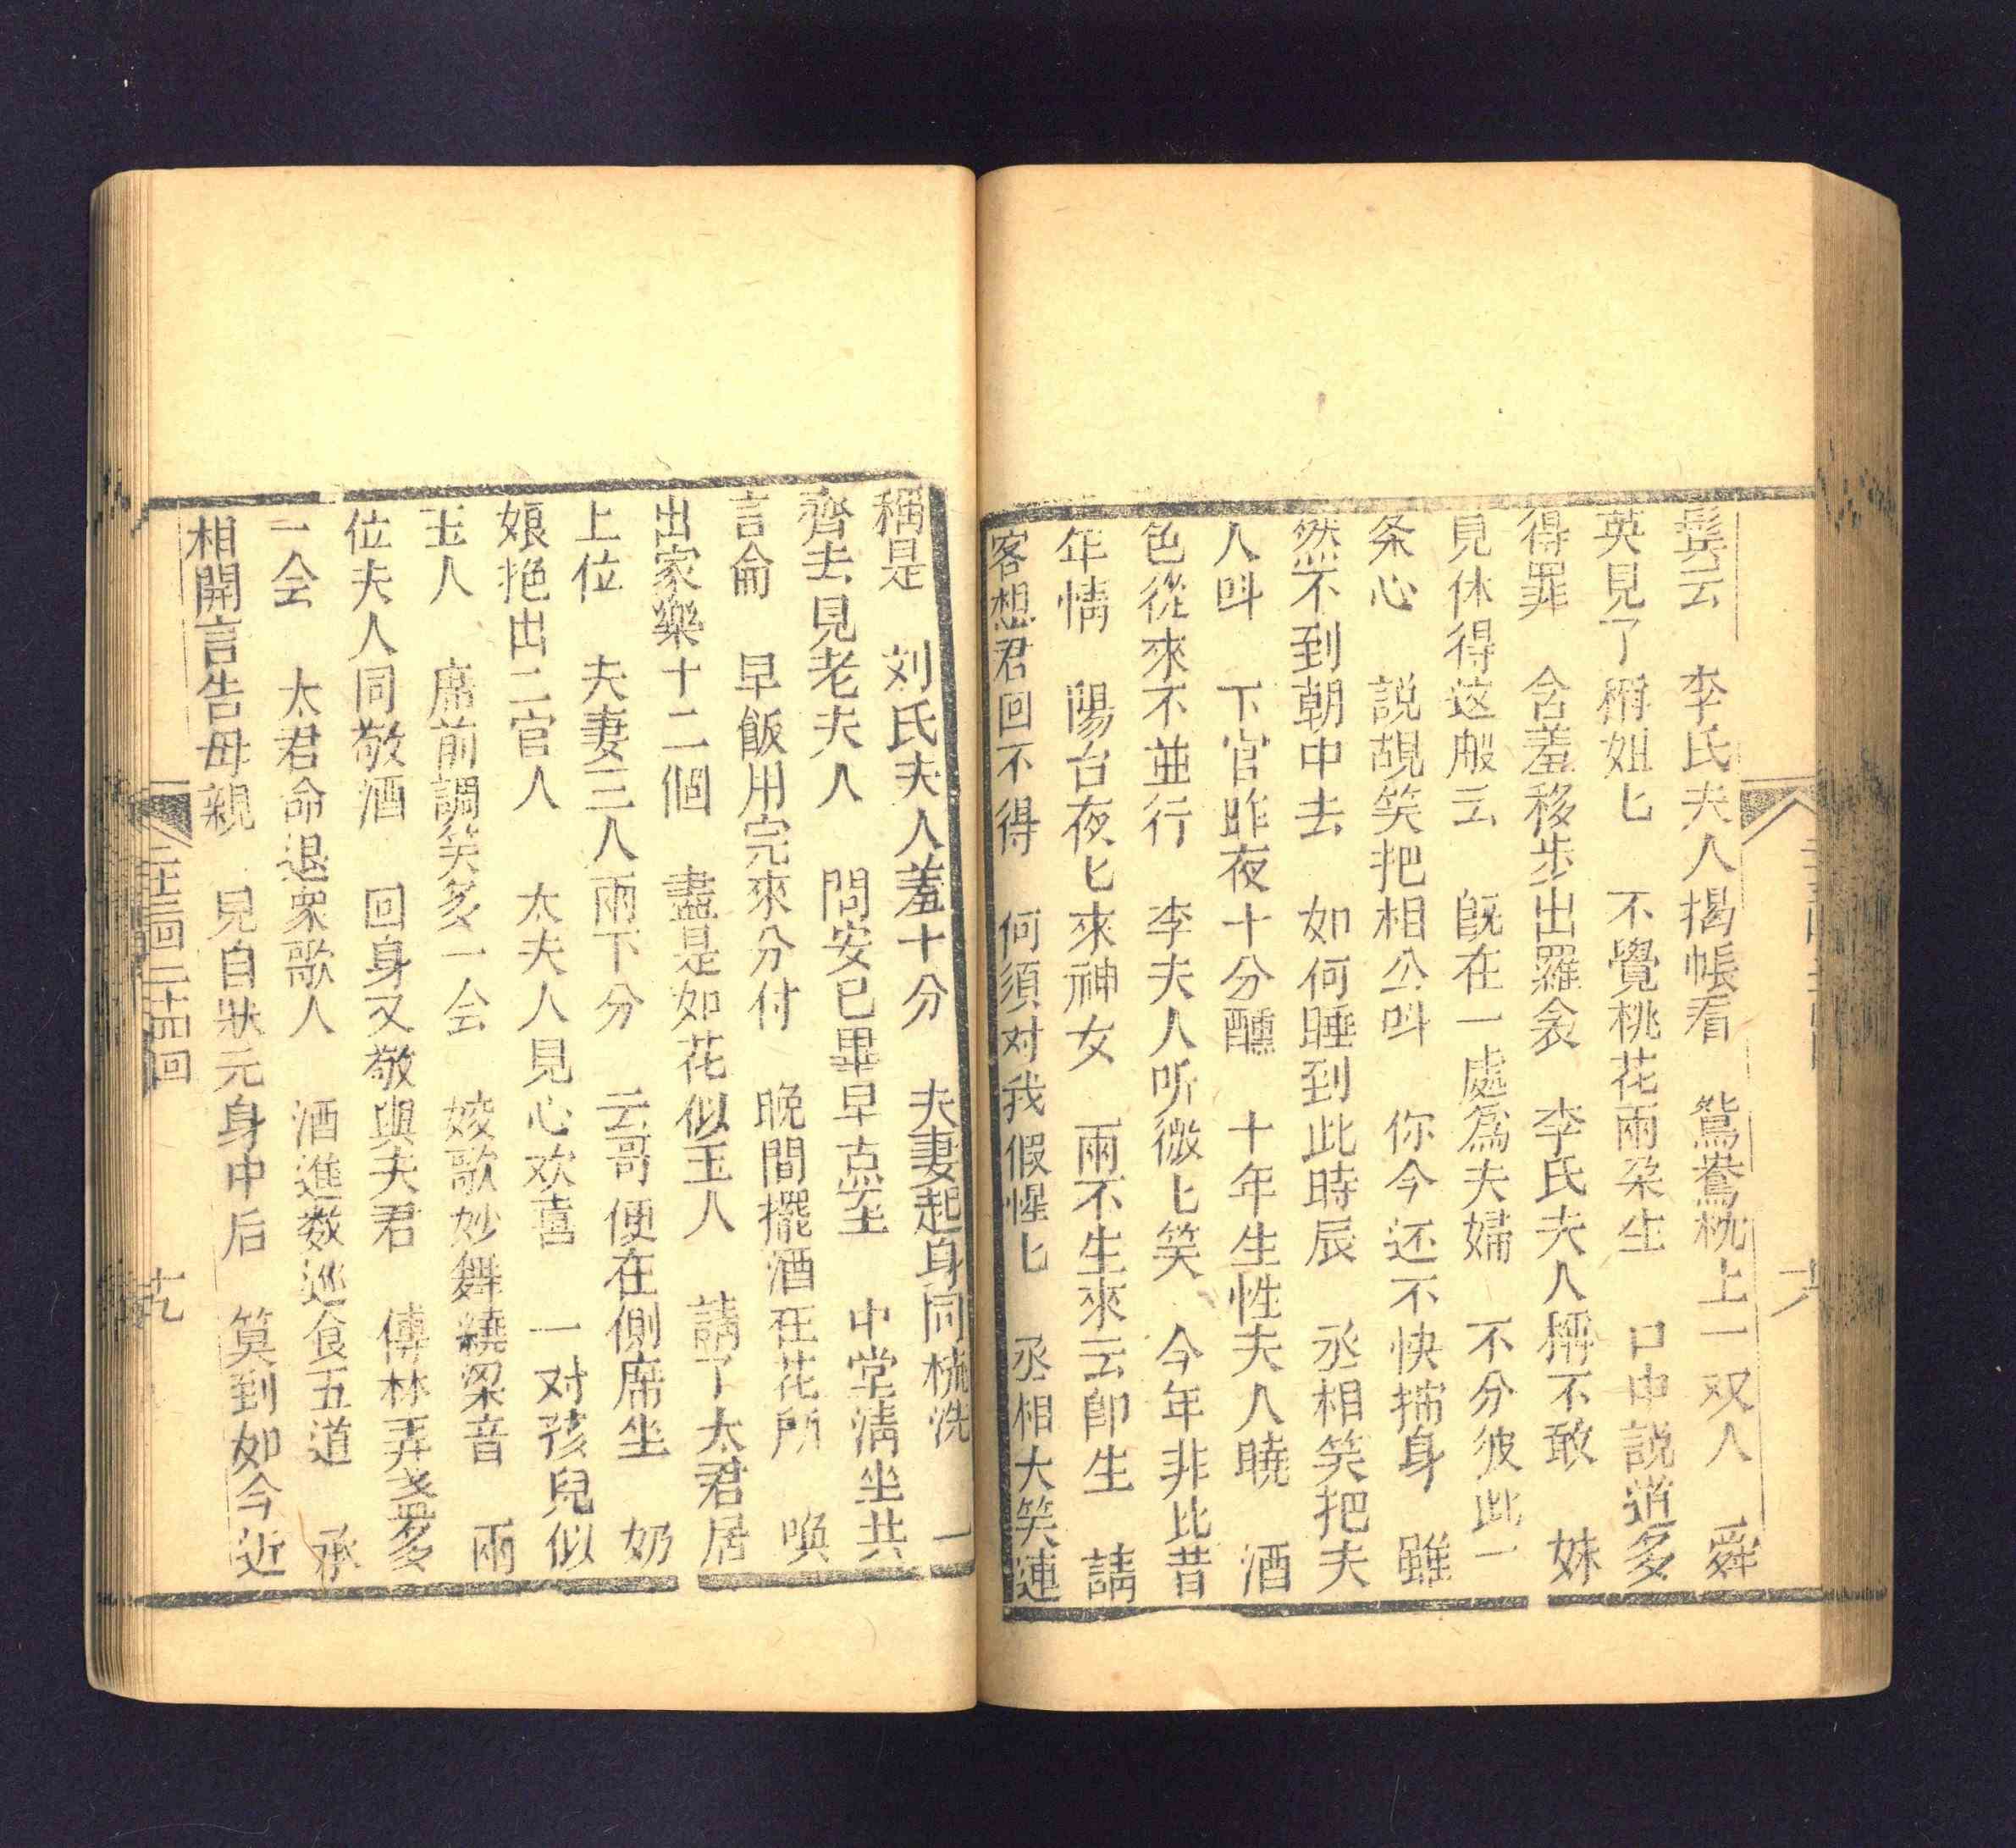 鬓云　李氏夫人揭帳看　鴛鴦枕上一双人　舜
英見了稱姐匕　不覺桃花兩朶生　口中説道多
得罪　含羞移步出羅衾　李氏夫人稱不敢　妹
見休得这般云　既在一處爲夫婦　不分彼此一
条心　説罷笑把相公呌　你今还不快揣身　雖
然不到朝中去　如何睡到此時辰　丞相笑把夫
人呌　下官昨夜十分醺　十年生性夫人曉　酒
色從來不並行　李夫人听微匕笑　今年非比昔
年情　陽台夜匕來神女　雨不生來云卽生　請
客想君回不得　何須对我假惺匕　丞相大笑連
稱是　刘氏夫人羞十分　夫妻起身同梳洗　一
齊去見老夫人　問安已畢早点至　中堂淸坐共
言侖　早飯用完來分付　晚間擺酒在花所　喚
出家樂十二個　盡是如花似玉人　請了太君居
上位　夫妻三人兩下分　云哥便在側席坐　奶
娘抱出二官人　太夫人見心欢喜　一对孩兒似
玉人　席前調笑多一会　姣歌妙舞繞梁音　兩
位夫人同敬酒　回身又敬與夫君　傳杯弄盞多
一会　太君命退衆歌人　酒進数巡食五道　承
相開言告母親　見自狀元身中后　筭到如今近
二十三回二十四回
十九